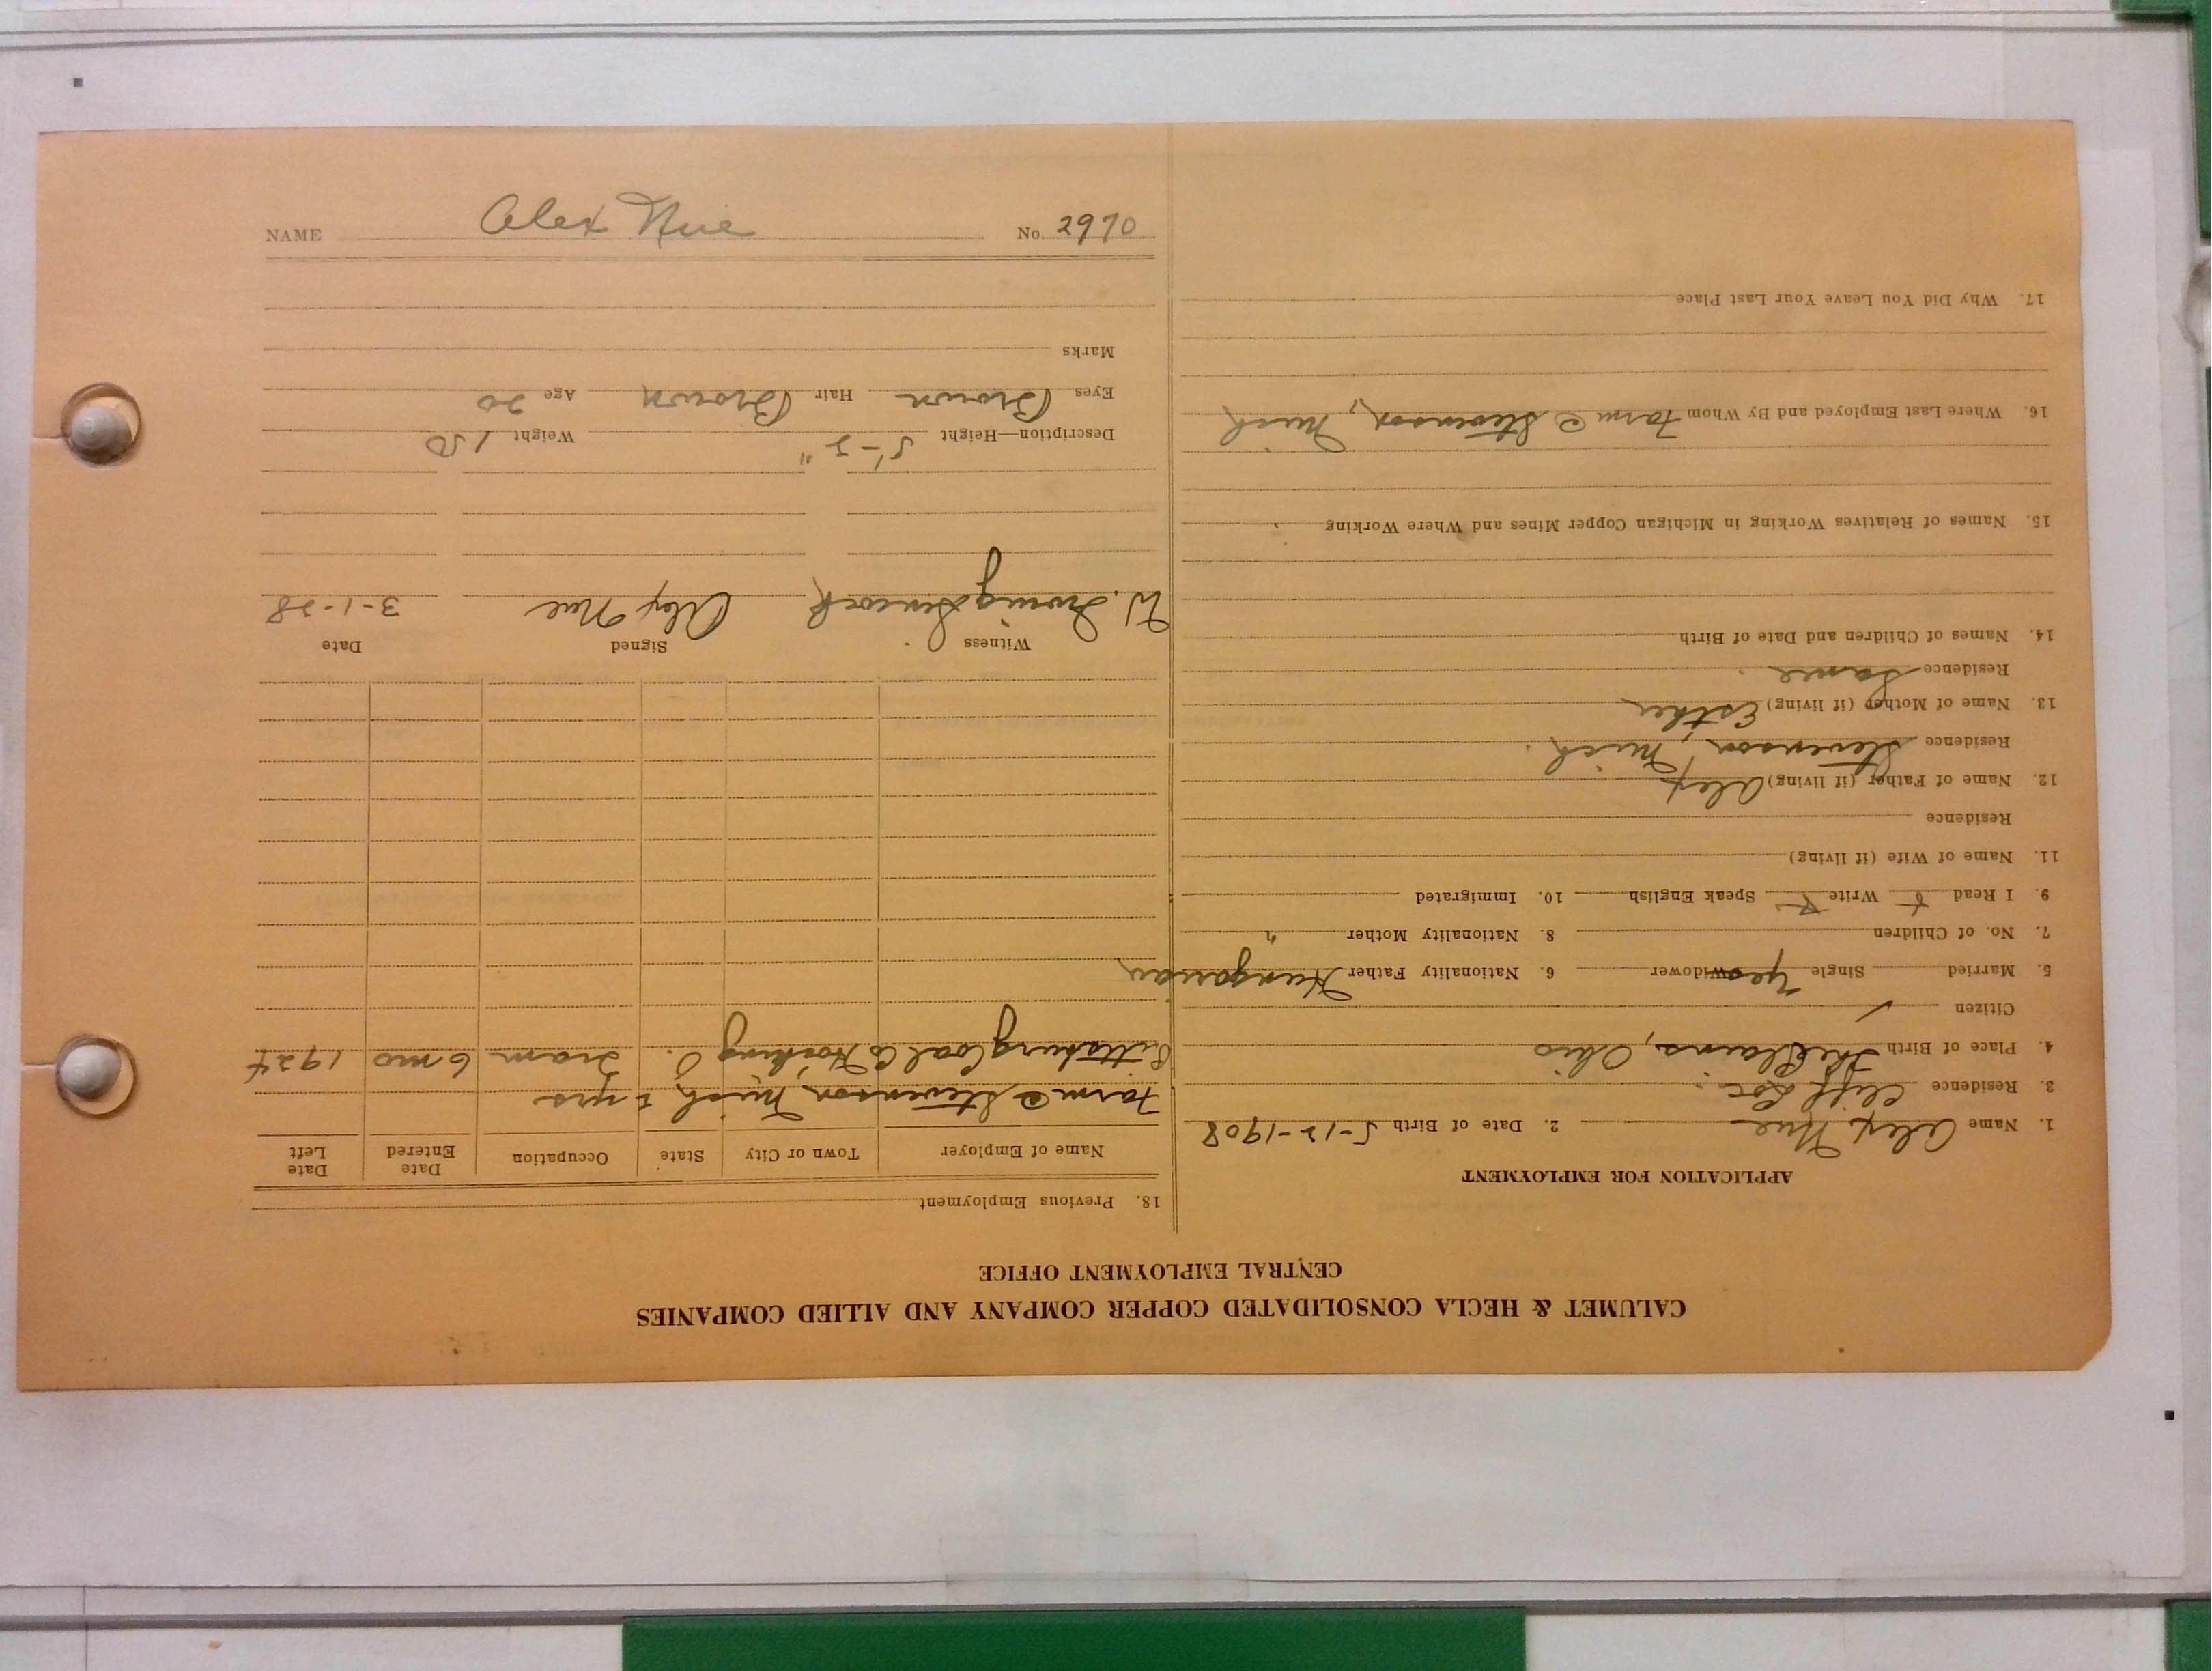 NAME Alex Nue No. 2970
CALUMET & HECLA CONSOLIDATED COPPER COMPANY AND ALLIED COMPANIES
CENTRAL EMPLOYMENT OFFICE
APPLICATION FOR EMPLOYMENT
1. Name Alex Nue 2. Date of Birth 5-12-1908
3. Residence Cliff Loc.
4. Place of Birth The Plains, Ohio
Citizen ✓
5. Married Single Yes Widower 6. Nationality Father Hungarian
7. No. of Children 8. Nationality Mother "
9. I Read Write Speak English 10. Immigrated
11. Name of Wife (if living)
Residence
12. Name of Father (if living) Alex
Residence Stevenson, Mich.
13. Name of Mother (if living) Esther
Residence Same.
14. Names of Children and Date of Birth
15. Names of Relatives Working in Michigan Copper Mines and Where Working
16. Where Last Employed and By Whom Farm @ Stevenson, Mich
17. Why Did You Leave Your Last Place
18. Previous Employment
Name of Employer Town or City State Occupation Date Entered Date Left
Farm @ Stevenson, Mich yrs
Pittsburg Coal Co Hocking O. Tram 6 mo 1924
Witness Signed Date
W. Irving Alex Nue 3-1-28
Description—Height 5'-5" Weight 150
Eyes Brown Hair Brown Age 20
Marks